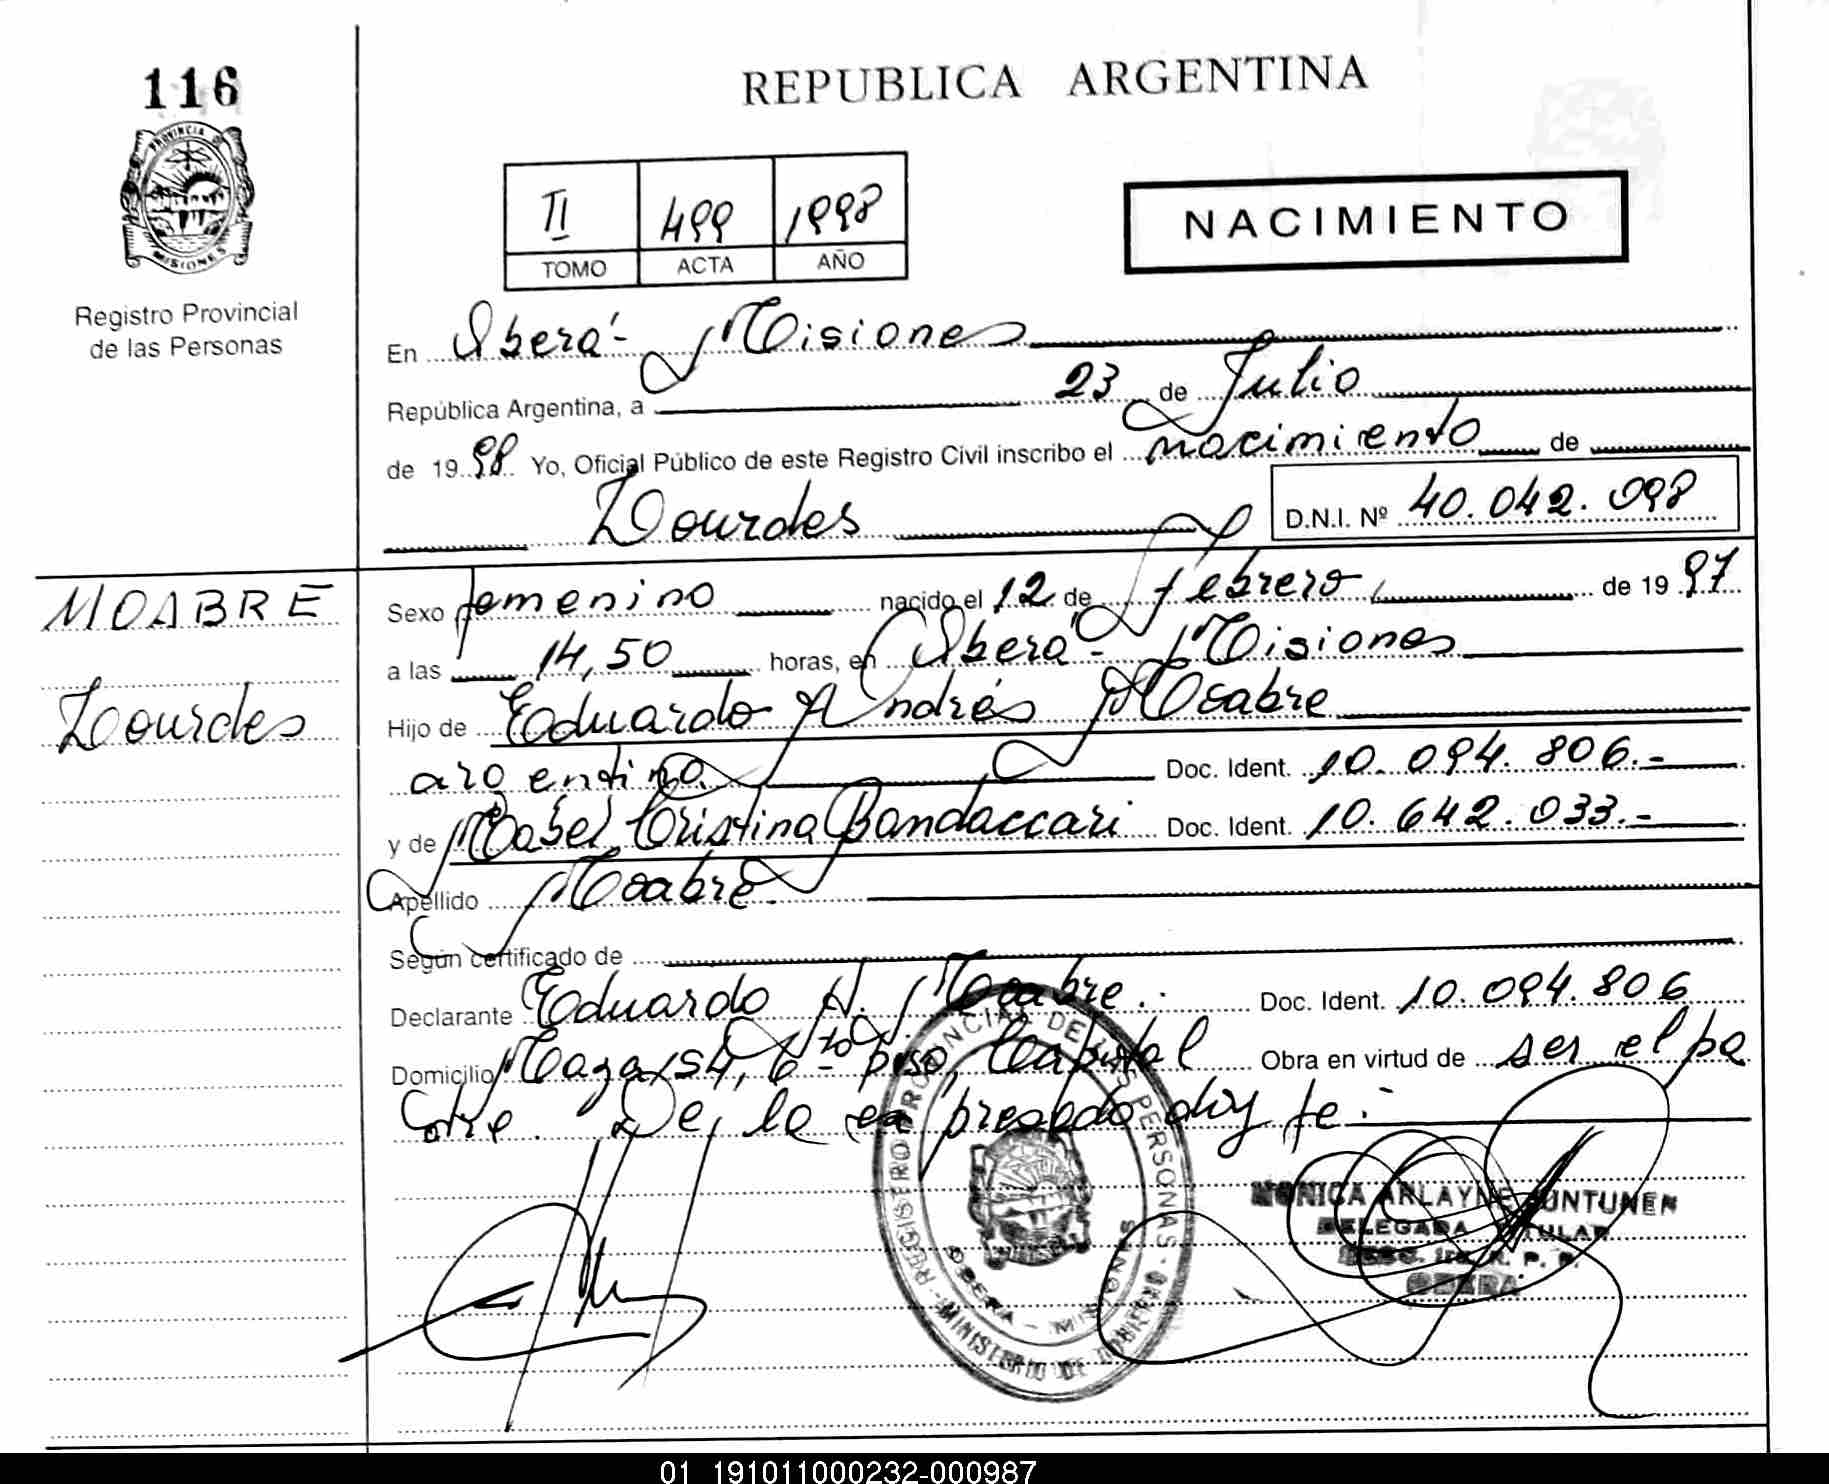 116
REPUBLICA ARGENTINA
PROVINCIA D
MISIONES
Registro Provincial
de las Personas
II 499 1998
TOMO ACTA AÑO
NACIMIENTO
En Oberá - Misiones
República Argentina, a 23 de Julio
de 19 98 Yo, Oficial Público de este Registro Civil inscribo el nacimiento de
Lourdes D.N.I. Nº 40.042.098
MOABRE
Lourdes
Sexo femenino nacido el 12 de febrero, de 19 97
a las 14,50 horas, en Oberá - Misiones
Hijo de Eduardo Andrés Moabre
argentino Doc. Ident. 10.094.806.-
y de Mabel Cristina Bandaccari Doc. Ident. 10.642.033.-
Apellido Moabre
Según certificado de
Declarante Eduardo A. Moabre.- Doc. Ident. 10.094.806
Domicilio Maza 154, 6to piso, Capital Obra en virtud de ser el pa
dre. De lo expresado doy fe.-
REGISTRO PROVINCIAL DE LAS PERSONAS
OBERA - MISIONES
MINISTERIO DE GOBIERNO
MONICA ARLAYNE JUNTUNEN
DELEGADA TITULAR
R. P. P.
OBERA
01 191011000232-000987